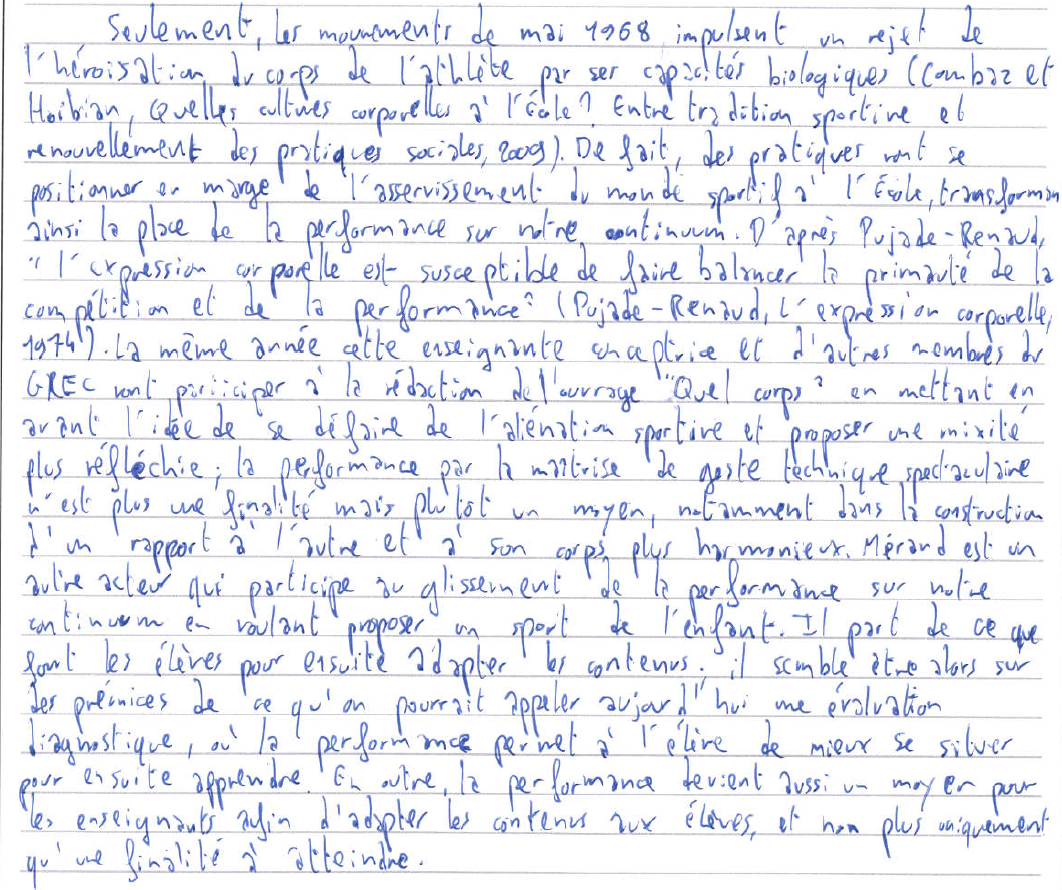 Seulement, les mouvements de mai 1968 impulsent un rejet de
l'héroïsation du corps de l'athlète par ses capacités biologiques (Combaz et
Hoibian, Quelles cultures corporelles à l'École ? Entre tradition sportive et
renouvellement des pratiques sociales, 2009). De fait, des pratiques vont se
positionner en marge de l'asservissement du monde sportif à l'École, transforman
ainsi la place de la performance sur notre continuum. D'après Pujade-Renaud,
"l'expression corporelle est susceptible de faire balancer la primauté de la
compétition et de la performance" (Pujade-Renaud, L'expression corporelle,
1974). La même année cette enseignante conceptrice et d'autres membres du
GREC vont participer à la rédaction de l'ouvrage "Quel corps ? en mettant en
avant l'idée de se défaire de l'aliénation sportive et proposer une mixité
plus réfléchie ; la performance par la maîtrise de geste technique spectaculaire
n'est plus une finalité mais plutôt un moyen, notamment dans la construction
d'un rapport à l'autre et à son corps plus harmonieux. Mérand est un
autre acteur qui participe au glissement de la performance sur notre
continuum en voulant proposer un sport de l'enfant. Il part de ce que
font les élèves pour ensuite adapter les contenus. il semble être alors sur
des prémices de ce qu'on pourrait appeler aujourd'hui une évaluation
diagnostique, où la performance permet à l'élève de mieux se situer
pour ensuite apprendre. En outre, la performance devient aussi un moyen pour
les enseignants afin d'adapter les contenus aux élèves, et non plus uniquement
qu'une finalité à atteindre.